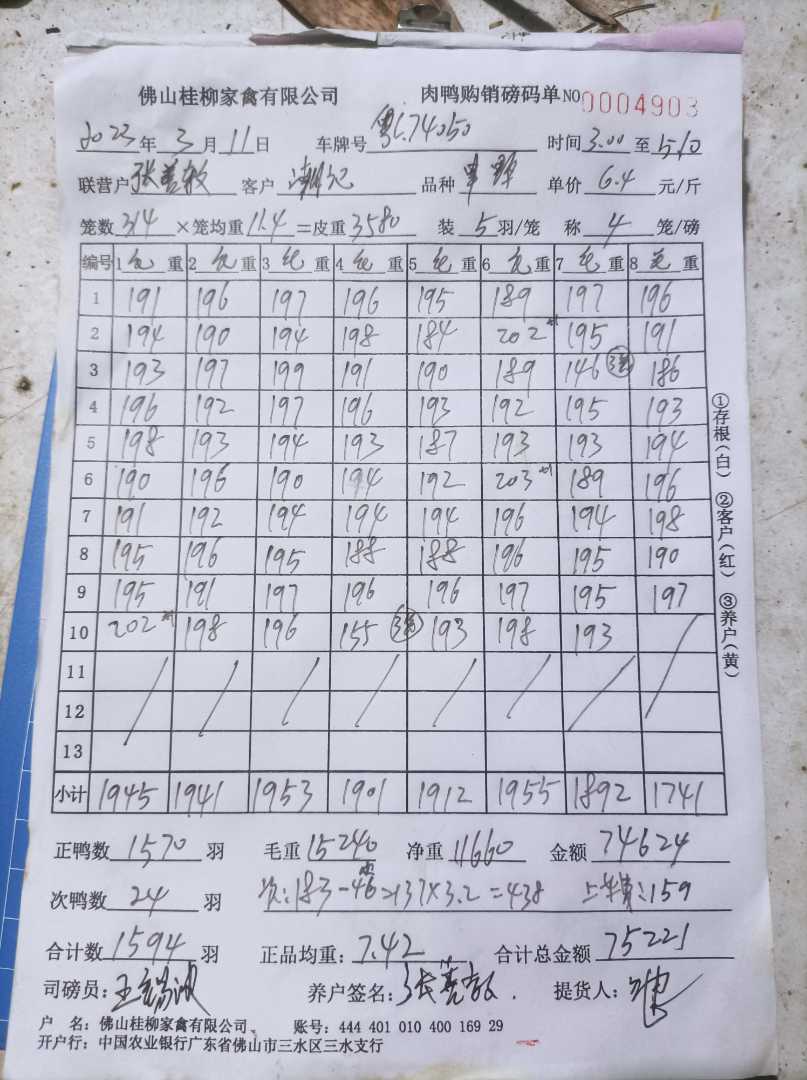 佛山桂柳家禽有限公司 肉鸭购销磅码单 NO 0004903
2023年3月11日 车牌号 粤L74050 时间3.00至5.10
联营户 张善敏 客户 潮记 品种 单价 6.4 元/斤
笼数314×笼均重11.4=皮重3580 装5羽/笼 称4笼/磅
编号 1毛重 2毛重 3毛重 4毛重 5毛重 6毛重 7毛重 8毛重
1 191 196 197 196 195 189 197 196
2 194 190 194 198 184 202 195 191
3 193 197 199 191 190 189 146 186
4 196 192 197 196 193 192 195 193
5 198 193 194 193 187 193 193 194
6 190 196 190 194 192 203 189 196
7 191 192 194 194 194 196 194 198
8 195 196 195 188 188 196 195 190
9 195 191 197 196 196 197 195 197
10 202 198 196 155 193 198 193
11
12
13
小计 1945 1941 1953 1901 1912 1955 1892 1741
正鸭数1570羽 毛重15240 净重11660 金额74624
次鸭数24羽 次:183-46=137×3.2=438 上车费:159
合计数1594羽 正品均重:7.42 合计总金额75221
司磅员: 养户签名:张善敏. 提货人:
户 名:佛山桂柳家禽有限公司、 账号:444 401 010 400 169 29
开户行:中国农业银行广东省佛山市三水区三水支行
①存根(白) ②客户(红) ③养户(黄)